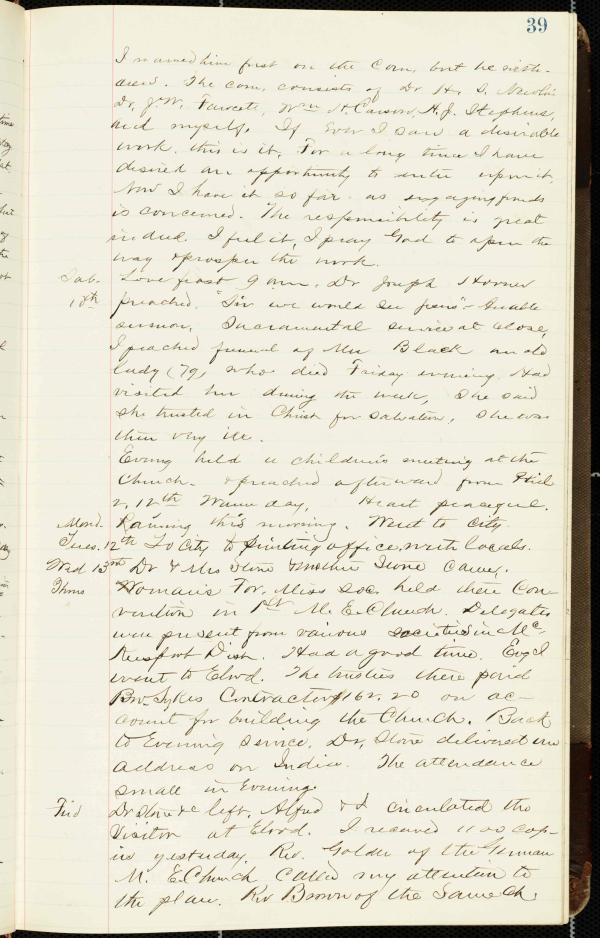 39
I named him first on the Com, but he with-
drew. The com, consists of Dr H. S.
Dr, J. W. Fawcett, Wm H. Carson, H. J. Stephens,
and myself. If ever I saw a desirable
work, this is it. For a long time I have
desired an opportunity to enter upon it.
Now I have it so far as engaging funds
is concerned. The responsibility is great
indeed. I feel it, I pray God to open the
way & prosper the work.
Sab. Love feast 9 am. Dr Joseph Horner
10th preached. "Sir we would see Jesus" - 
sermon. Sacramental service at close,
I preached funeral of Mrs Black an old
lady (79) who died Friday evening. Had
visited her during the week, She said
She trusted in Christ for Salvation, She was
then very ill.
Eveng held a children's meeting at the
Church. & preached afterward from Phil
2, 12th Warm day, Heart peaceful.
Mond. Raining this morning. Went to City
Tues. 12th To City to printing office, with locals.
Wed 13th Dr & Mrs Stone & mother Stone came.
Thurs Woman's For. Miss Soc. held their Con-
vention in 1st M. E. Church. Delegates
were present from various societies in Mc-
Keesport Dist. Had a good time. Eveg I
went to Elrod. The trustees there paid
Bro. Sykes Contractor $162.20 on ac-
count for building the Church. Back
to Evening service. Dr, Stone delivered an
address on India. The attendance
small in Evening.
Frid Dr Stone &c left. Alfred & I circulated the
Visitor at Elrod. I received 1100 cop-
ies yesterday. Rev. Golder of the German
M. E. Church called my attention to
the plan. Rev Brown of the Same Ch.